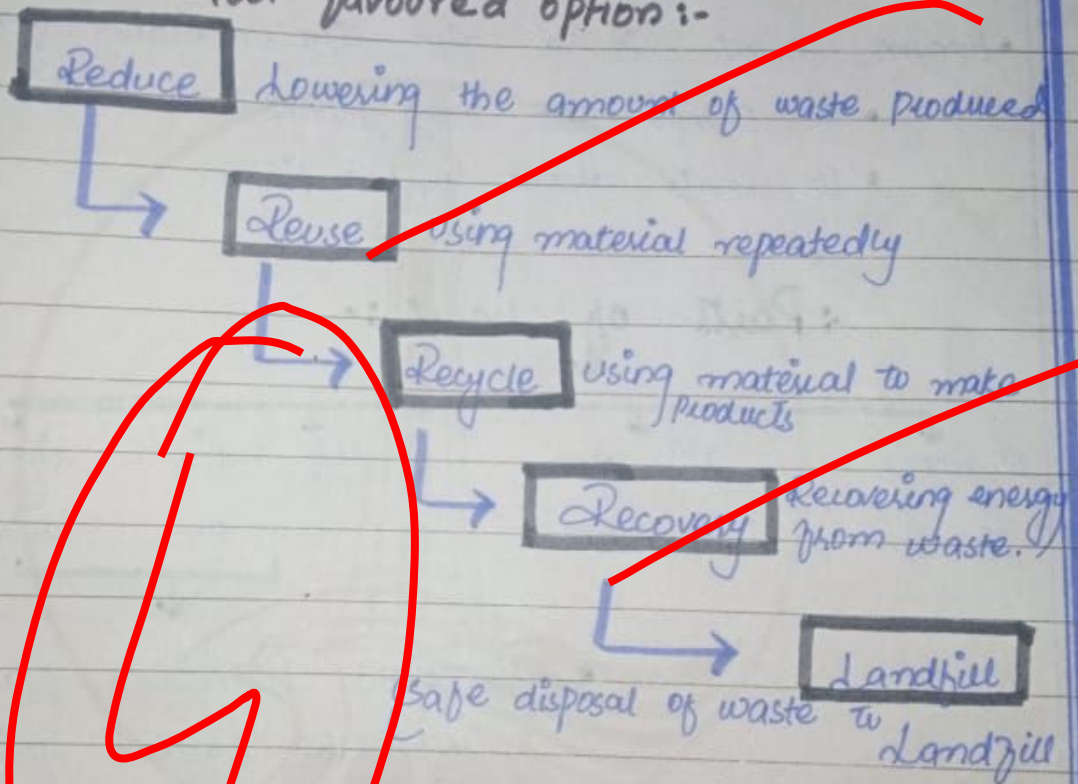 favoured option :-
Reduce Lowering the amount of waste produced
Reuse using material repeatedly
Recycle using material to make
products
Recovery Recovering energy
from waste.
Landfill
Safe disposal of waste to
Landfill